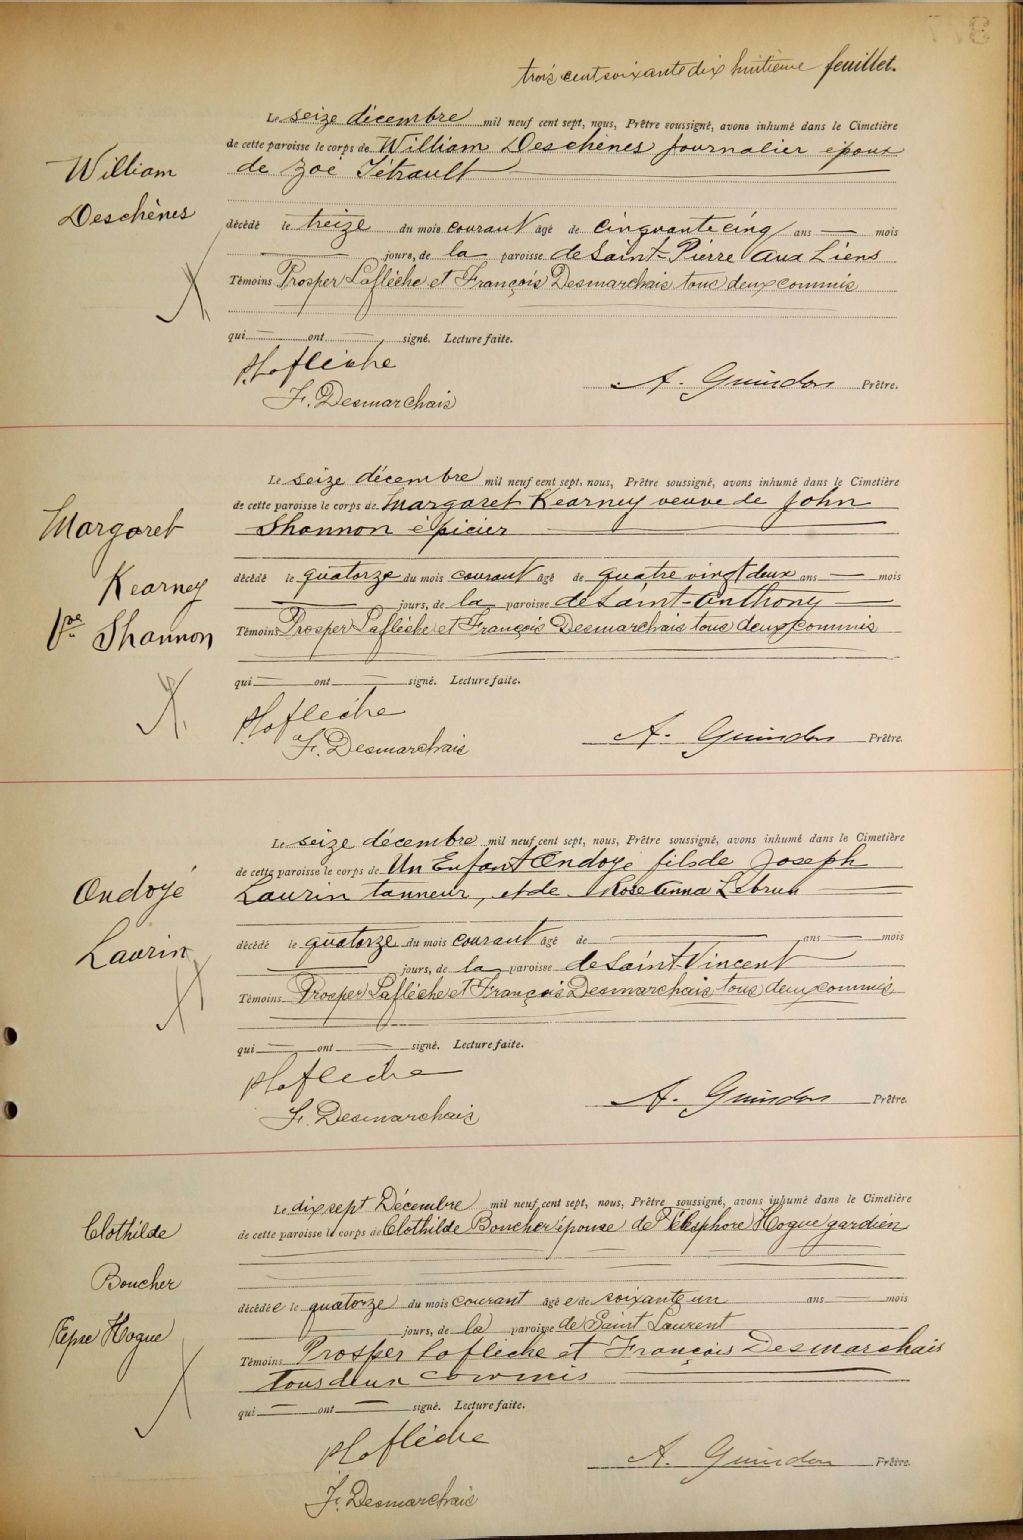 trois cent soixante dix huitième feuillet.
Le seize décembre mil neuf cent sept, nous, Prêtre soussigné, avons inhumé dans le Cimetière
de cette paroisse le corps de William Deschènes journalier époux
de Zoé Tétrault
William
Deschènes
décédé le treize du mois courant âgé de cinquante cinq ans — mois
— jours, de la paroisse de Saint-Pierre aux Liens
Témoins Prosper Laflèche et François Desmarchais tous deux commis
qui — ont — signé. Lecture faite.
P Laflèche
A. Guindon Prêtre.
F. Desmarchais
Le seize décembre mil neuf cent sept, nous, Prêtre soussigné, avons inhumé dans le Cimetière
de cette paroisse le corps de Margaret Kearney veuve de John
Shannon épicier
Margaret
Kearney
Vve Shannon
décédé le quatorze du mois courant âgé de quatre vingt deux ans — mois
— jours, de la paroisse de Saint-Anthony —
Témoins Prosper Laflèche et François Desmarchais tous deux commis
qui — ont — signé. Lecture faite.
P Laflèche
A. Guindon Prêtre.
F. Desmarchais
Le seize décembre mil neuf cent sept, nous, Prêtre soussigné, avons inhumé dans le Cimetière
de cette paroisse le corps de Un Enfant Ondoyé fils de Joseph
Laurin tanneur, et de Rose Anna Lebrun
Ondoyé
Laurin
décédé le quatorze du mois courant âgé de — ans — mois
— jours, de la paroisse de Saint Vincent
Témoins Prosper Laflèche et François Desmarchais tous deux commis
qui — ont — signé. Lecture faite.
P Laflèche
A. Guindon Prêtre.
F. Desmarchais
Le dix sept Décembre mil neuf cent sept, nous, Prêtre soussigné, avons inhumé dans le Cimetière
de cette paroisse le corps de Clothilde Boucher épouse de Télesphore Hogue gardien
Clothilde
Boucher
Epse Hogue
décédée le quatorze du mois courant âgée de soixante un ans — mois
— jours, de la paroisse de Saint Laurent
Témoins Prosper Laflèche et François Desmarchais
tous deux commis
qui — ont — signé. Lecture faite.
P Laflèche
A. Guindon Prêtre.
F. Desmarchais